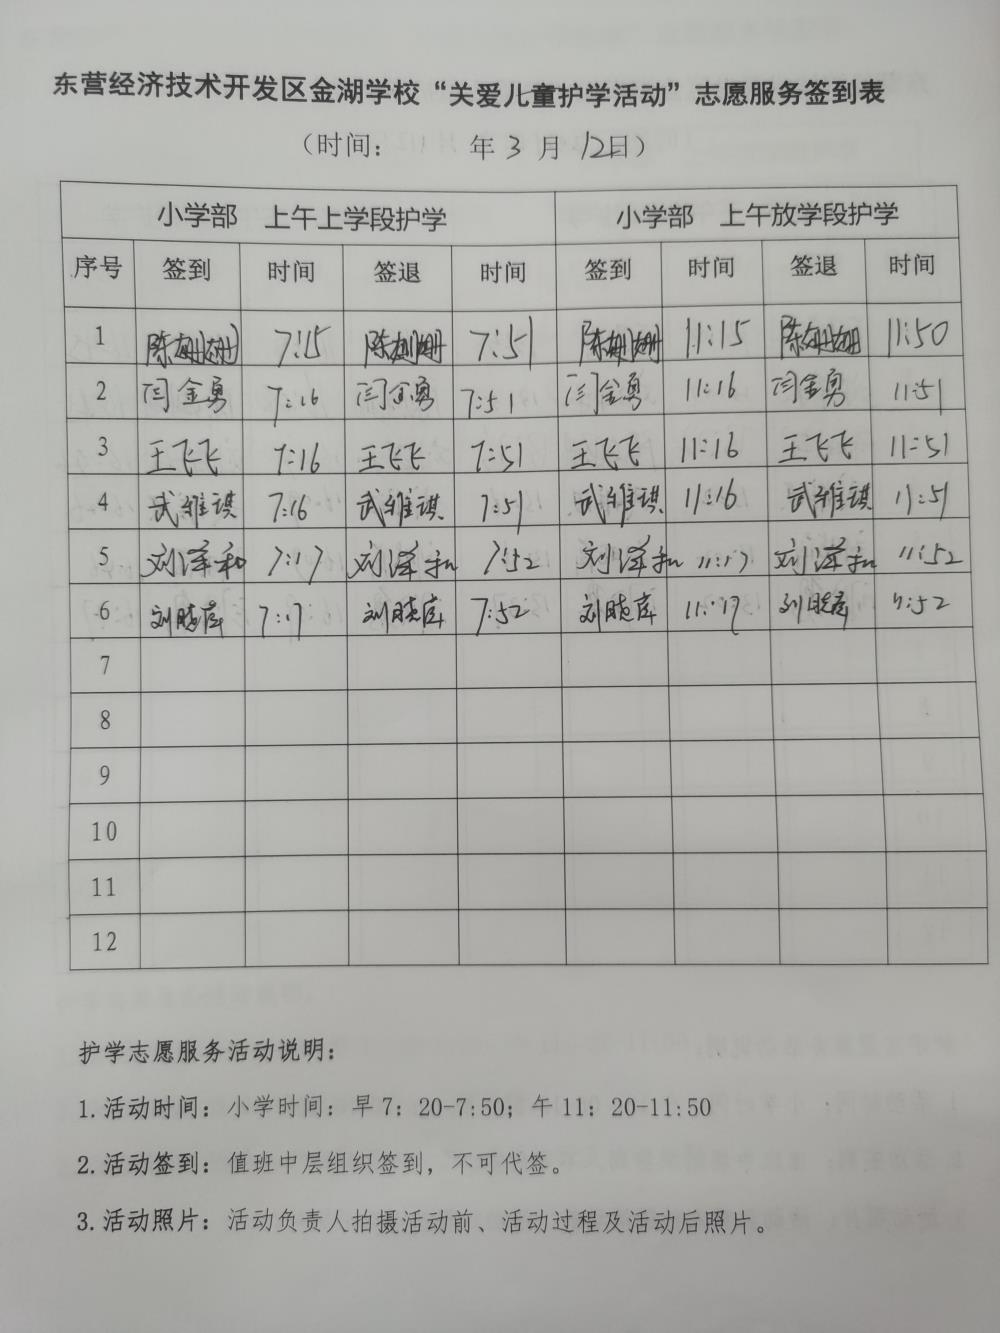 东营经济技术开发区金湖学校“关爱儿童护学活动”志愿服务签到表
（时间： 年 3 月 12日）
小学部 上午上学段护学 小学部 上午放学段护学
序号 签到 时间 签退 时间 签到 时间 签退 时间
1 陈姗姗 7:15 陈姗姗 7:51 陈姗姗 11:15 陈姗姗 11:50
2 闫金勇 7:16 闫金勇 7:51 闫金勇 11:16 闫金勇 11:51
3 王飞飞 7:16 王飞飞 7:51 王飞飞 11:16 王飞飞 11:51
4 武维琪 7:16 武维琪 7:51 武维琪 11:16 武维琪 11:51
5 刘泽和 7:17 刘泽和 7:52 刘泽和 11:17 刘泽和 11:52
6 7:17 7:52 11:17
7
8
9
10
11
12
护学志愿服务活动说明：
1.活动时间：小学时间：早7：20-7:50；午11：20-11:50
2.活动签到：值班中层组织签到，不可代签。
3.活动照片：活动负责人拍摄活动前、活动过程及活动后照片。